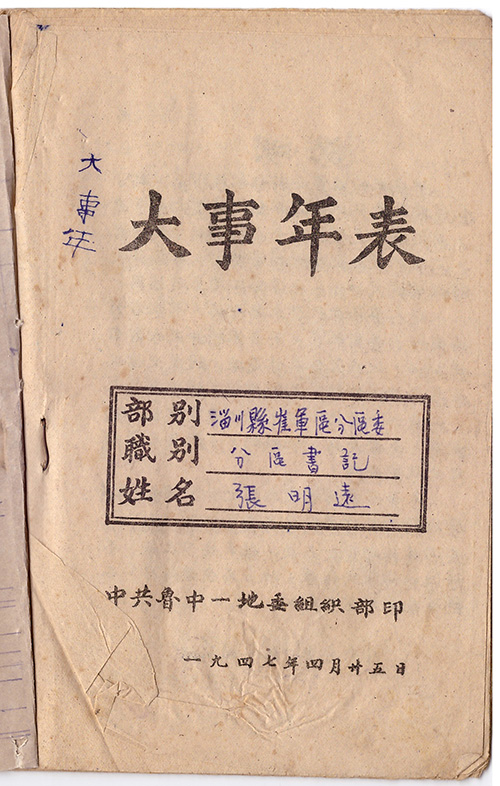 大事年
大事年表
部别 淄川縣崔軍區分區委
職别 分區書記
姓名 張明遠
中共魯中一地委組織部印
一九四七年四月廿五日